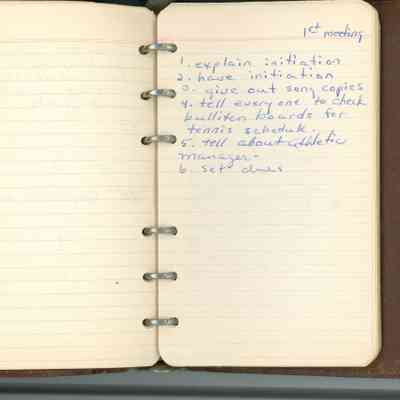 1st meeting
1. explain initiation
2. have initiation
3. give out song copies
4. tell everyone to check
bulliten boards for
tennis schedule.
5. tell about athletic
manager.
6. set dues